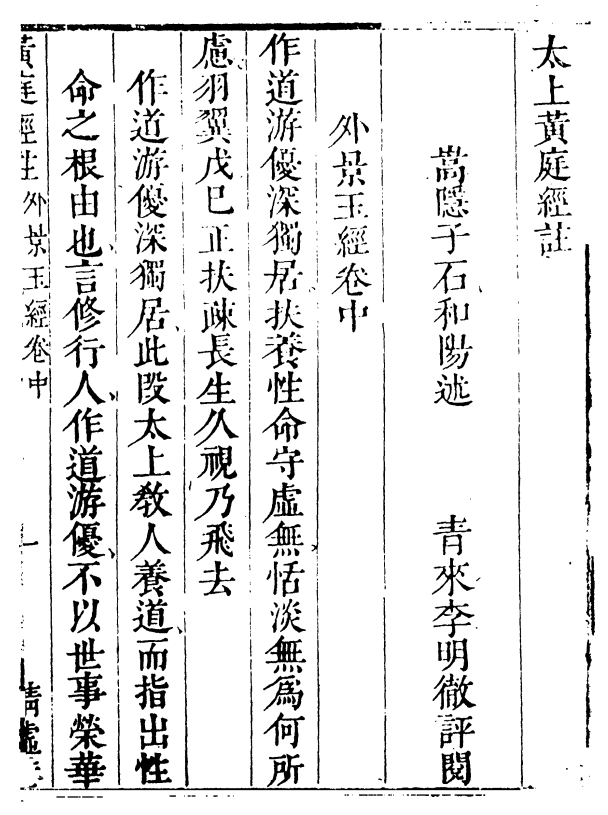 太上黃庭經註
嵩隱子石和陽述　青來李明徹評閱
外景玉經卷中
作道游優深獨居扶養性命守虛無恬淡無為何所
慮羽翼戊巳正扶疎長生久視乃飛去
作道游優深獨居此段太上教人養道而指出性
命之根由也言修行人作道游優不以世事榮華
黃庭經註 外景玉經卷中 一